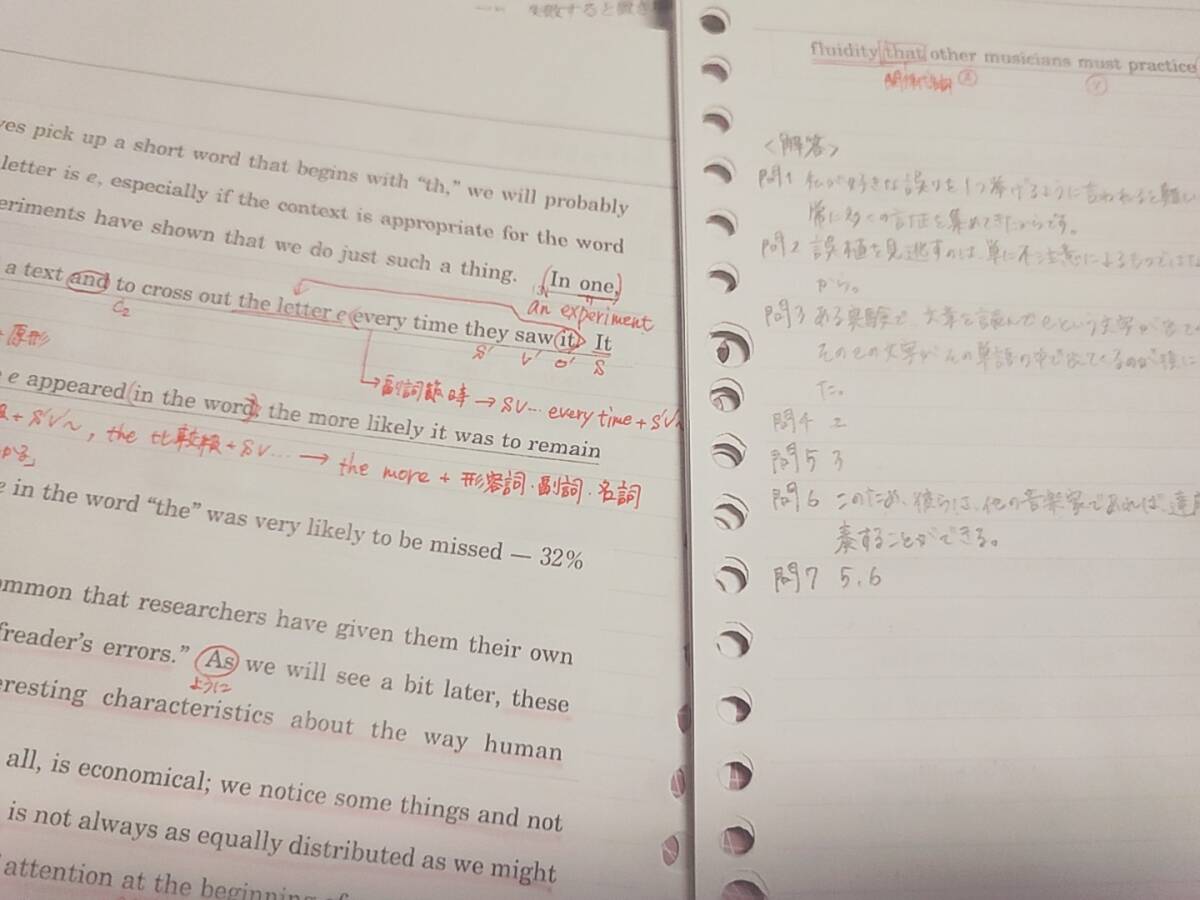 失敗すると
pick up a short word that begins with “th,” we will probably
letter is e, especially if the context is appropriate for the word
have shown that we do just such a thing. (In one,)
an experiment
a text and to cross out the letter e every time they saw it. It
C₂ S' V' O' S
原形
副詞節 時 → SV… every time + S'V'~
e appeared (in the word), the more likely it was to remain
+ S'V'~, the 比較級 + SV… → the more + 形容詞・副詞・名詞
e in the word “the” was very likely to be missed — 32%
that researchers have given them their own
errors.” As we will see a bit later, these
ように
characteristics about the way human
all, is economical; we notice some things and not
is not always as equally distributed as we might
attention at the beginning of
fluidity that other musicians must practice
S V
<解答>
問1 私が好きな誤りを1つ挙げるように言われると難し
常に多くの言い
を集めてきたからです。
問2 誤植を見逃すのは、単に不注意によるもの
から。
問3 ある実験で、文章を読んでeという文字が出て
そのeの文字がその単語の中で出てくるのが後に
た。
問4 2
問5 3
問6 このため、彼らは、他の音楽家であれば、
奏することができる。
問7 5、6